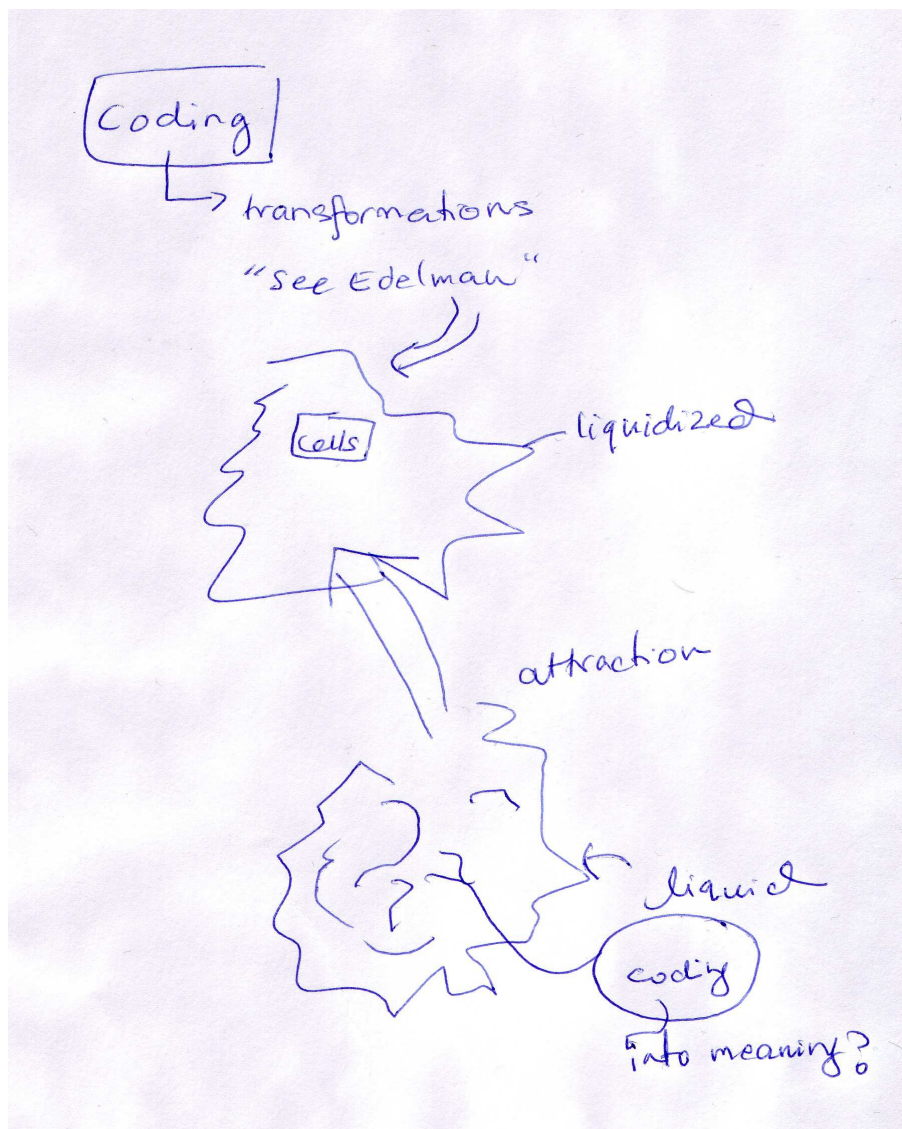 Coding
transformations
"See Edelman"
cells
liquidized
attraction
liquid
coding
into meaning?